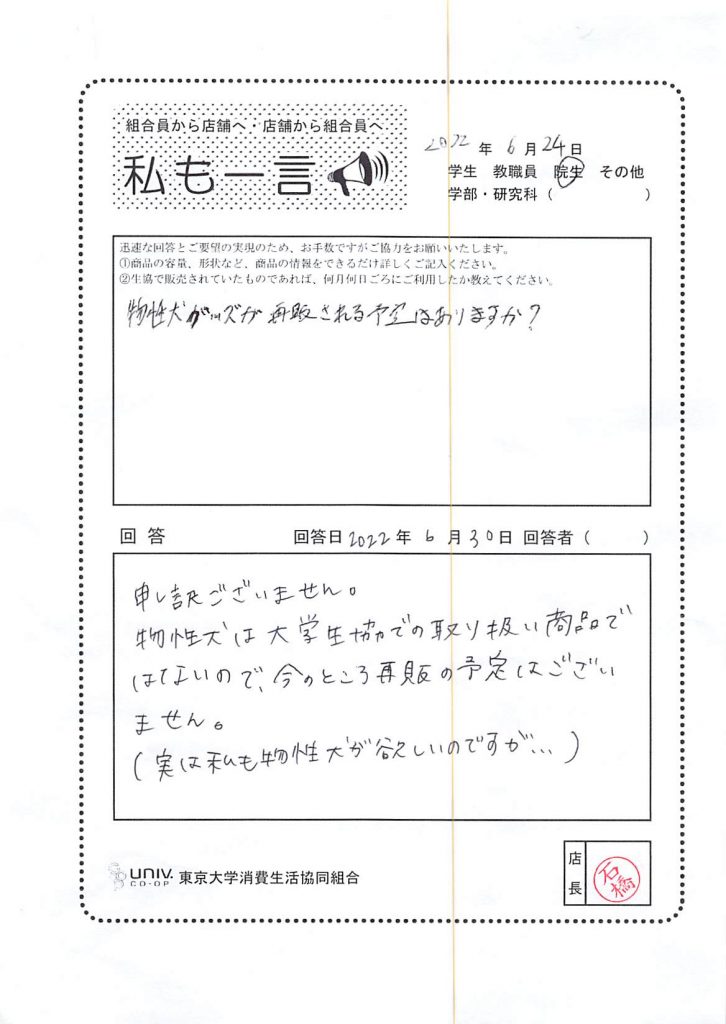 組合員から店舗へ・店舗から組合員へ
私も一言
2022年6月24日
学生 教職員 院生 その他
学部・研究科( )
迅速な回答とご要望の実現のため、お手数ですがご協力をお願いいたします。
①商品の容量、形状など、商品の情報をできるだけ詳しくご記入ください。
②生協で販売されていたものであれば、何月何日ごろにご利用したか教えてください。
物性犬グッズが再販される予定はありますか?
回答 回答日2022年6月30日 回答者( )
申し訳ございません。
物性犬は大学生協での取り扱い商品で
はないので、今のところ再販の予定はござい
ません。
(実は私も物性犬が欲しいのですが…)
UNIV.
CO-OP
東京大学消費生活協同組合
店長
石橋